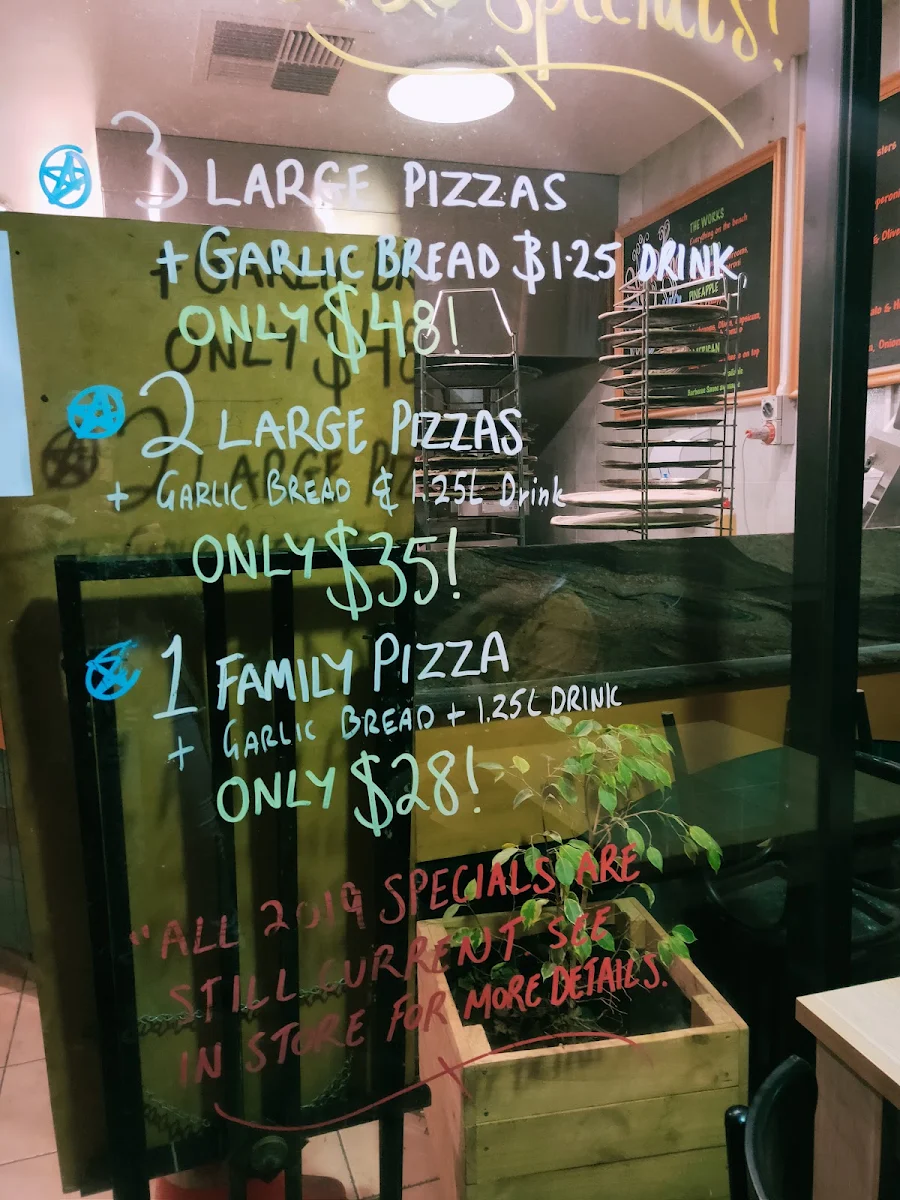 Specials!
3 LARGE PIZZAS
+ GARLIC BREAD $1.25 DRINK
ONLY $48!
2 LARGE PIZZAS
+ GARLIC BREAD & 1.25L Drink
ONLY $35!
1 FAMILY PIZZA
+ GARLIC BREAD + 1.25L DRINK
ONLY $28!
"ALL 2019 SPECIALS ARE
STILL CURRENT. SEE
IN STORE FOR MORE DETAILS.
THE WORKS
Everything on the bench
PINEAPPLE